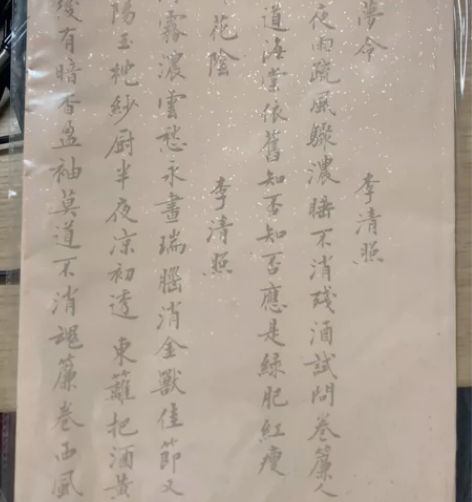 夢令 李清照
夜雨疏風驟濃睡不消殘酒試問卷簾人
道海棠依舊知否知否應是綠肥紅瘦
花陰 李清照
霧濃雲愁永晝瑞腦消金獸佳節又
陽玉枕紗厨半夜凉初透 東籬把酒黃
後有暗香盈袖莫道不消魂簾卷西風